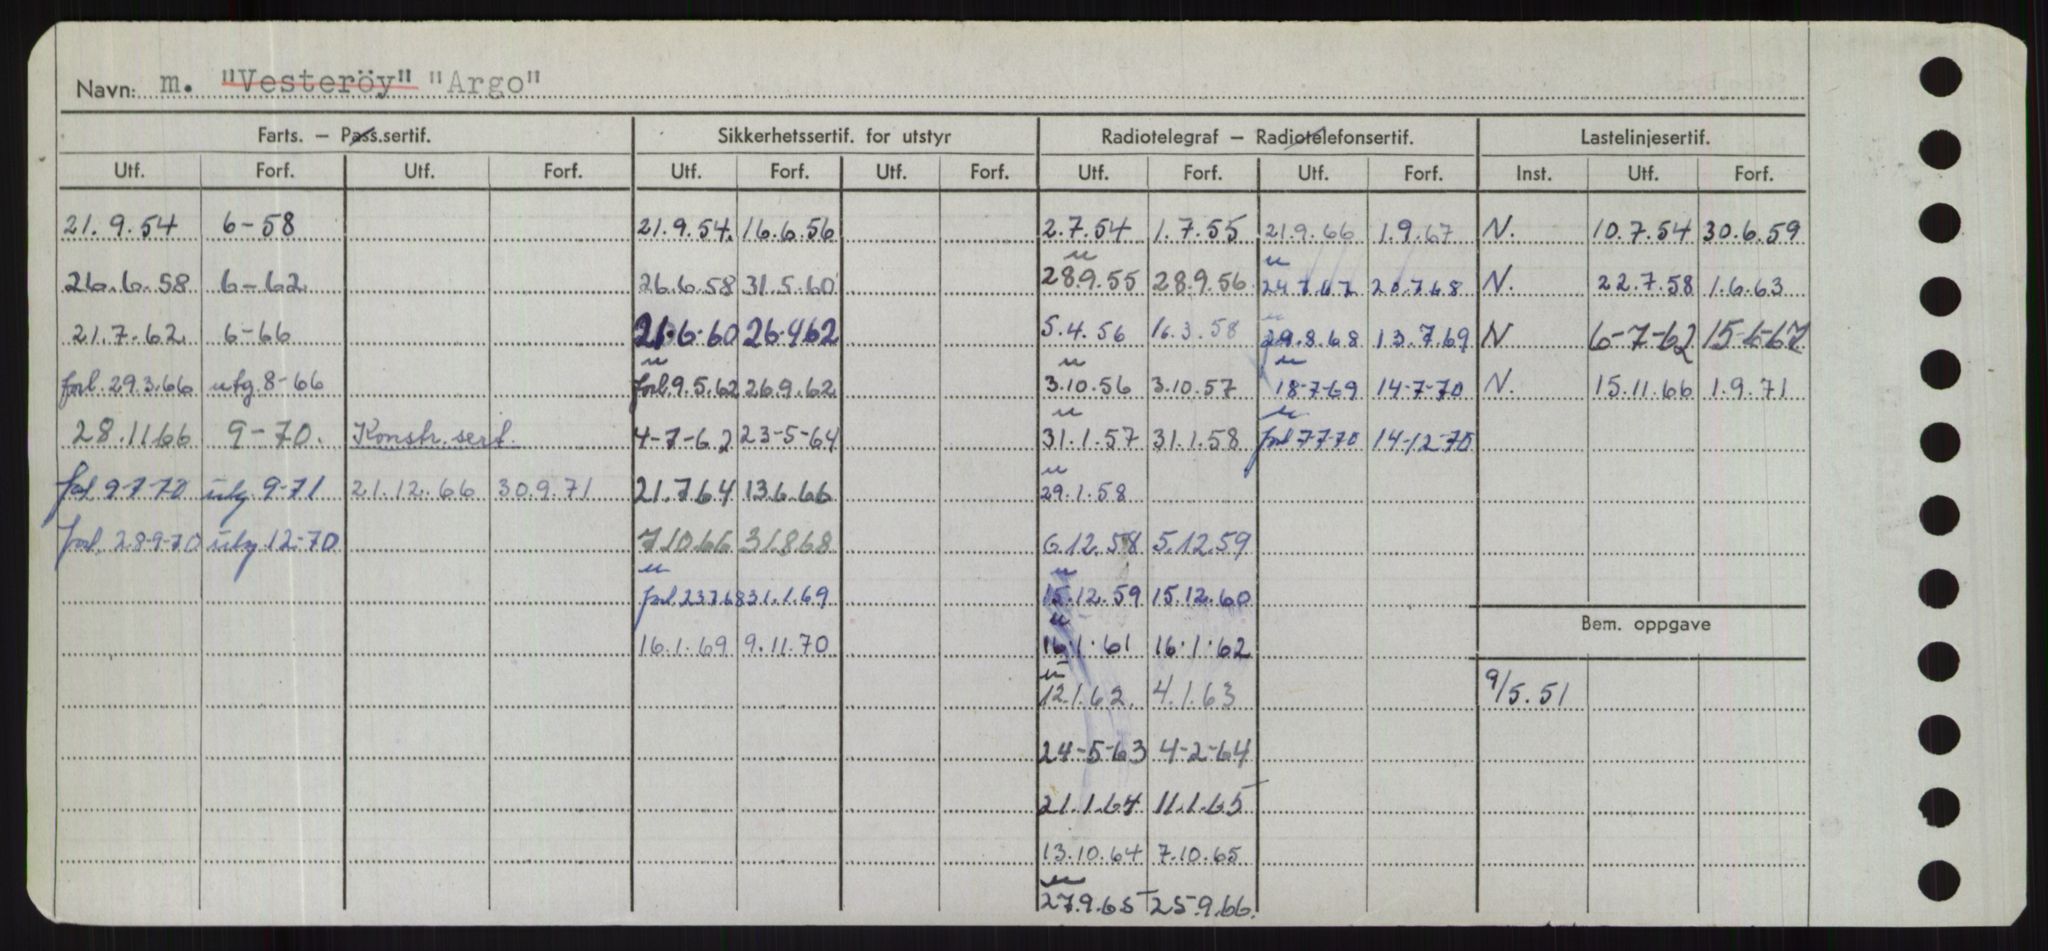 Navn: m. "Vesteröy" "Argo"
Farts. — Pass.sertif. Sikkerhetssertif. for utstyr Radiotelegraf — Radiotelefonsertif. Lastelinjesertif.
Utf. Forf. Utf. Forf. Utf. Forf. Utf. Forf. Utf. Forf. Utf. Forf. Inst. Utf. Forf.
21.9.54 6-58 21.9.54. 16.6.56 2.7.54 1.7.55 21.9.66 1.9.67 N. 10.7.54 30.6.59
26.6.58 6-62 26.6.58 31.5.60 28.9.55 28.9.56 24.7.67 20.7.68 N. 22.7.58 1.6.63
21.7.62 6-66 21.6.60 26.4.62 5.4.56 16.3.58 29.8.68 13.7.69 N 6-7-62 15-6-67
forl. 29.3.66 utg. 8-66 forl. 9.5.62 26.9.62 3.10.56 3.10.57 18-7-69 14-7-70 N. 15.11.66 1.9.71
28.11.66 9-70. Konstr. sert. 4-7-62 23-5-64 31.1.57 31.1.58 forl 7-7-70 14-12-70
forl. 9-7-70 utg 9-71 21.12.66 30.9.71 21.7.64 13.6.66 29.1.58
forl. 28-9-70 utg 12-70 7.10.66 31.8.68 6.12.58 5.12.59
forl. 23.7.68 31.1.69 15.12.59 15.12.60
Bem. oppgave
16.1.69 9.11.70 16.1.61 16.1.62
12.1.62. 4.1.63 9/5.51
24-5-63 4-2-64
21.1.64 11.1.65
13.10.64 7.10.65
27.9.65 25.9.66.